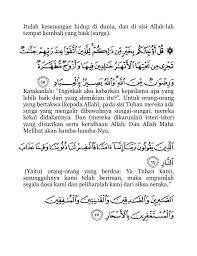 Itulah kesenangan hidup di dunia, dan di sisi Allah-lah
tempat kembali yang baik (surga).
۞ قُلْ أَؤُنَبِّئُكُم بِخَيْرٍ مِّن ذَٰلِكُمْ لِلَّذِينَ اتَّقَوْا عِندَ رَبِّهِمْ جَنَّاتٌ
تَجْرِي مِن تَحْتِهَا الْأَنْهَارُ خَالِدِينَ فِيهَا وَأَزْوَاجٌ مُّطَهَّرَةٌ
وَرِضْوَانٌ مِّنَ اللَّهِ وَاللَّهُ بَصِيرٌ بِالْعِبَادِ ١٥
Katakanlah: "Inginkah aku kabarkan kepadamu apa yang
lebih baik dari yang demikian itu?". Untuk orang-orang
yang bertakwa (kepada Allah), pada sisi Tuhan mereka ada
surga yang mengalir dibawahnya sungai-sungai; mereka
kekal didalamnya. Dan (mereka dikaruniai) isteri-isteri
yang disucikan serta keridhaan Allah. Dan Allah Maha
Melihat akan hamba-hamba-Nya.
الَّذِينَ يَقُولُونَ رَبَّنَا إِنَّنَا آمَنَّا فَاغْفِرْ لَنَا ذُنُوبَنَا وَقِنَا عَذَابَ
النَّارِ ١٦
(Yaitu) orang-orang yang berdoa: Ya Tuhan kami,
sesungguhnya kami telah beriman, maka ampunilah
segala dosa kami dan peliharalah kami dari siksa neraka,"
الصَّابِرِينَ وَالصَّادِقِينَ وَالْقَانِتِينَ وَالْمُنفِقِينَ
وَالْمُسْتَغْفِرِينَ بِالْأَسْحَارِ ١٧